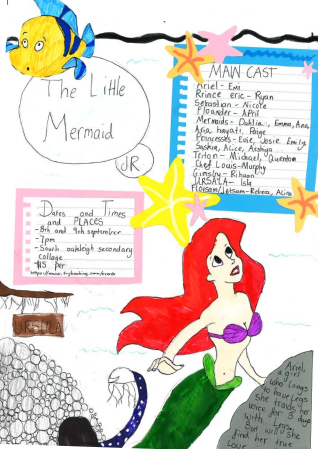 The Little
Mermaid
JR
MAIN CAST
Ariel - Emi
Prince eric - Ryan
Sebastian - Nicole
Flounder - April
Mermaids - Dahlia, Emma, Ana,
Aria, hayati, Paige
Princesses - Evie, Josie, Emily,
Sasha, Alice,
Triton - Michael, Quentom
Chef Louis - Murphy
Grimsby - Rihaan
URSULA - Isla
Flotsam/Jetsam - Rebecca, Alice
Dates and Times
and PLACES
- 8th and 9th september
- 7pm
- South oakleigh secondary
collage
- $15 per
https://www.trybooking.com/events
URSULA
Ariel,
a girl
who longs
to have legs
she trades her
voice for 3 days
with legs,
But will she
find her true
Love